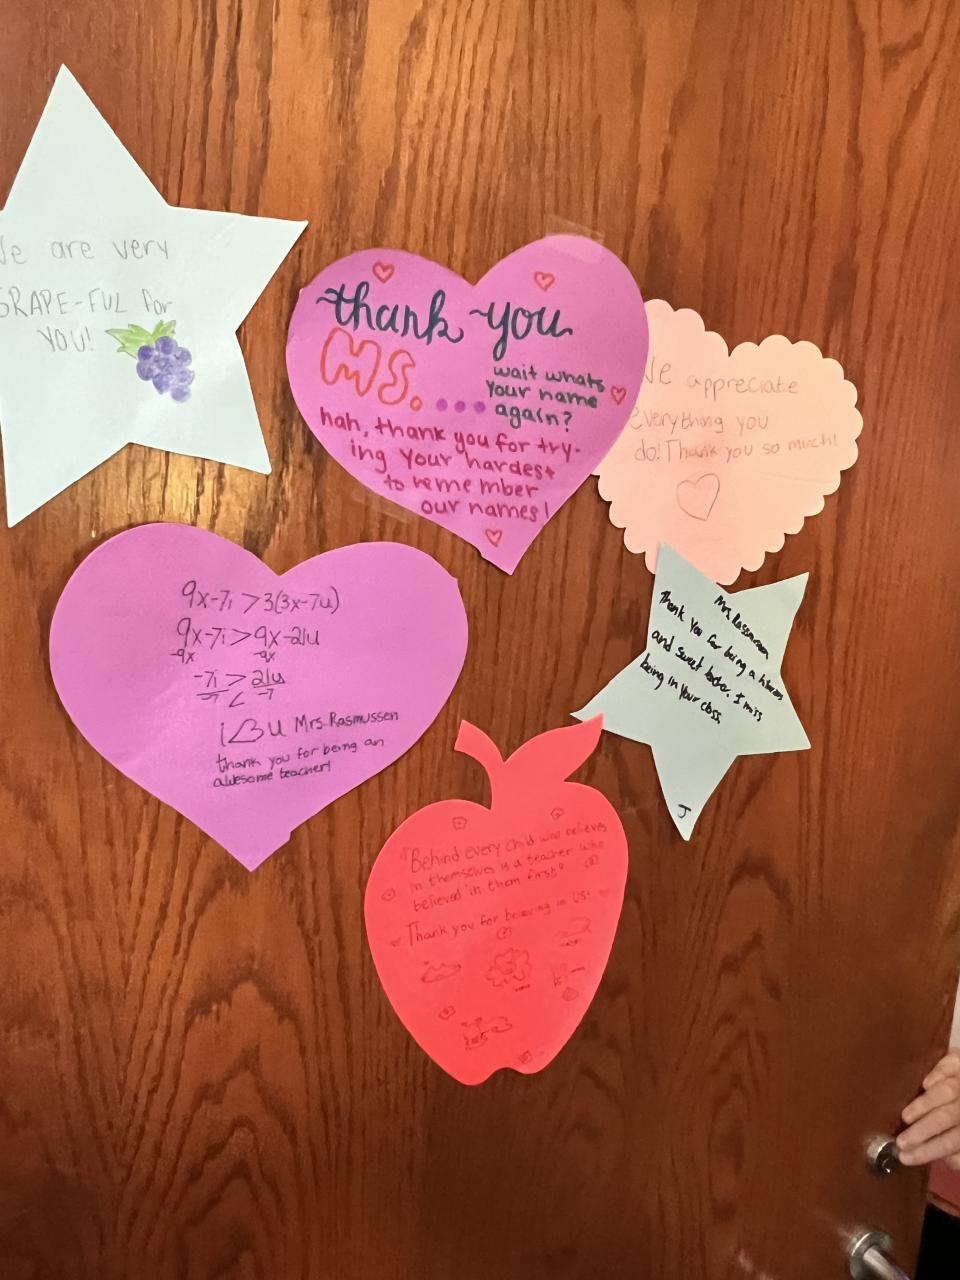 We are very
GRAPE-FUL for
YOU!
thank you
MS....
wait whats
your name
again?
hah, thank you for try-
ing your hardest
to remember
our names!
We appreciate
everything you
do! Thank you so much!
9x-7i > 3(3x-7u)
9x-7i > 9x-21u
-9x -9x
-7i > 21u
-7 < -7
i <3 u Mrs. Rasmussen
thank you for being an
awesome teacher!
Mrs. Rasmussen
Thank you for being a hilarious
and sweet teacher. I miss
being in your class
J
"Behind every child who believes
in themselves is a teacher who
believed in them first"
Thank you for believing in us!